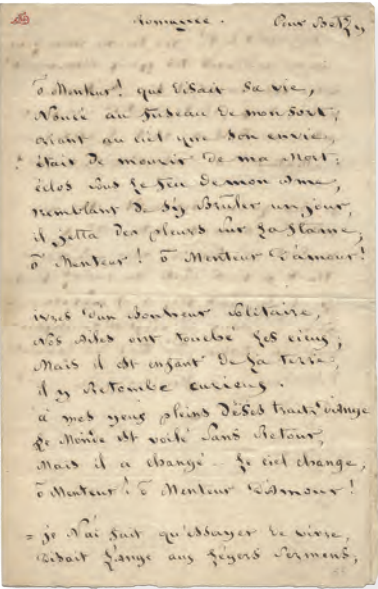 Romance. Pour Betzy
ô Menteur! qui disait sa vie,
Nouée au fuseau de mon sort;
criant au ciel que son envie,
était de mourir de ma Mort;
éclos sous le feu de mon ame,
tremblant de s'y Bruler un jour,
il jetta des pleurs sur la flame,
ô Menteur! ô Menteur d'amour!
ivres d'un Bonheur solitaire,
Nos ailes ont touché les cieux;
Mais il est enfant de la terre,
il y Retombe curieux.
à mes yeux pleins de ses traits d'ange
le Monde est voilé sans Retour,
Mais il a changé - le ciel change,
ô Menteur! ô Menteur d'Amour!
= je n'ai fait qu'essayer de vivre,
disait l'ange aux légers sermens,